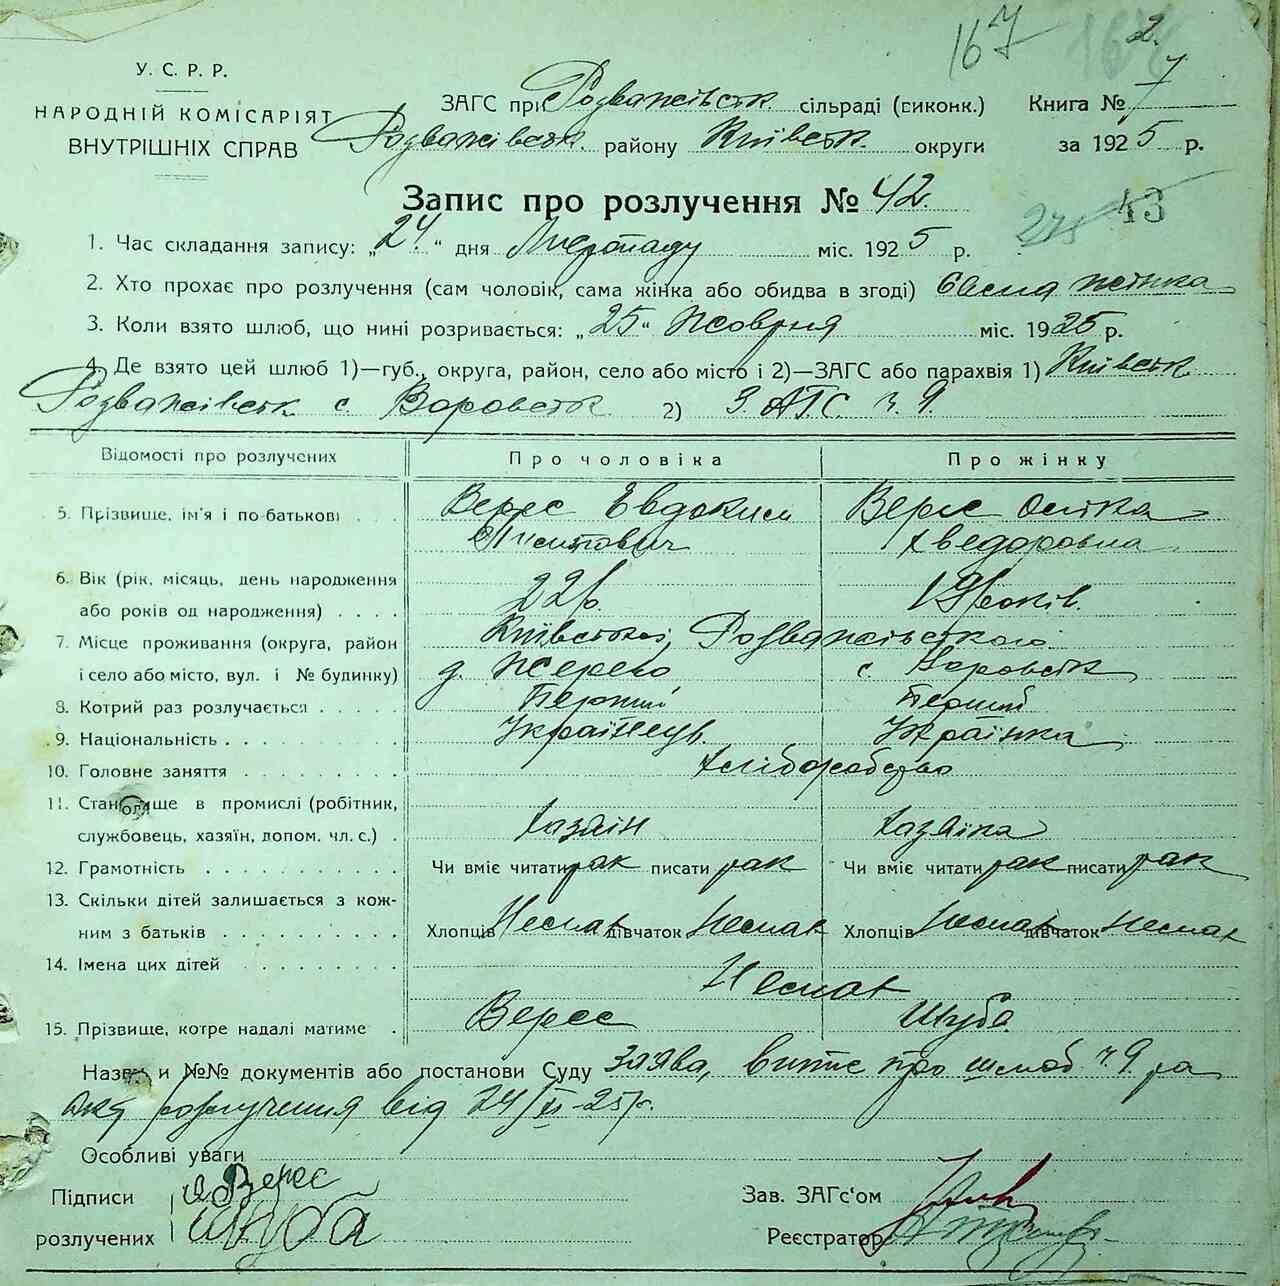 167
2.
У. С. Р. Р.
НАРОДНІЙ КОМІСАРІЯТ
ВНУТРІШНІХ СПРАВ
ЗАГС при Розважівськ сільраді (виконк.) Книга № 7
Розважівськ. району Київськ. округи за 1925 р.
Запис про розлучення № 42.
43
1. Час складання запису: „24“ дня Листопаду міс. 1925 р.
2. Хто прохає про розлучення (сам чоловік, сама жінка або обидва в згоді) жінка
3. Коли взято шлюб, що нині розривається: „25“ Жовтня міс. 1925 р.
4. Де взято цей шлюб 1)—губ., округа, район, село або місто і 2)—ЗАГС або парахвія 1) Київськ
Розважівськ с. 2) ЗАГС ч. 9.
Відомості про розлучених Про чоловіка Про жінку
5. Прізвище, ім'я і по-батькові Верес Евдоким Верес
Хведоровна
6. Вік (рік, місяць, день народження
або років од народження) 22 р. 19 років.
7. Місце проживання (округа, район Київської, Розважівського
і село або місто, вул. і № будинку) д. Жерево с.
8. Котрий раз розлучається Перший Перший
9. Національність Українець. Українка
10. Головне заняття Хліборобство
11. Становище в промислі (робітник,
службовець, хазяїн, допом. чл. с.) Хазяїн Хазяйка
12. Грамотність Чи вміє читати так писати так Чи вміє читати так писати так
13. Скільки дітей залишається з кож-
ним з батьків Хлопців Немає дівчаток Немає Хлопців Немає дівчаток Немає
14. Імена цих дітей Немає
15. Прізвище, котре надалі матиме Верес Шуба
Назви и №№ документів або постанови Суду Заява, витяг про шлюб ч. 9 та
акт розлучення від 24/XI-25 р.
Особливі уваги
Підписи Верес Зав. ЗАГс‘ом
розлучених Шуба Реєстратор